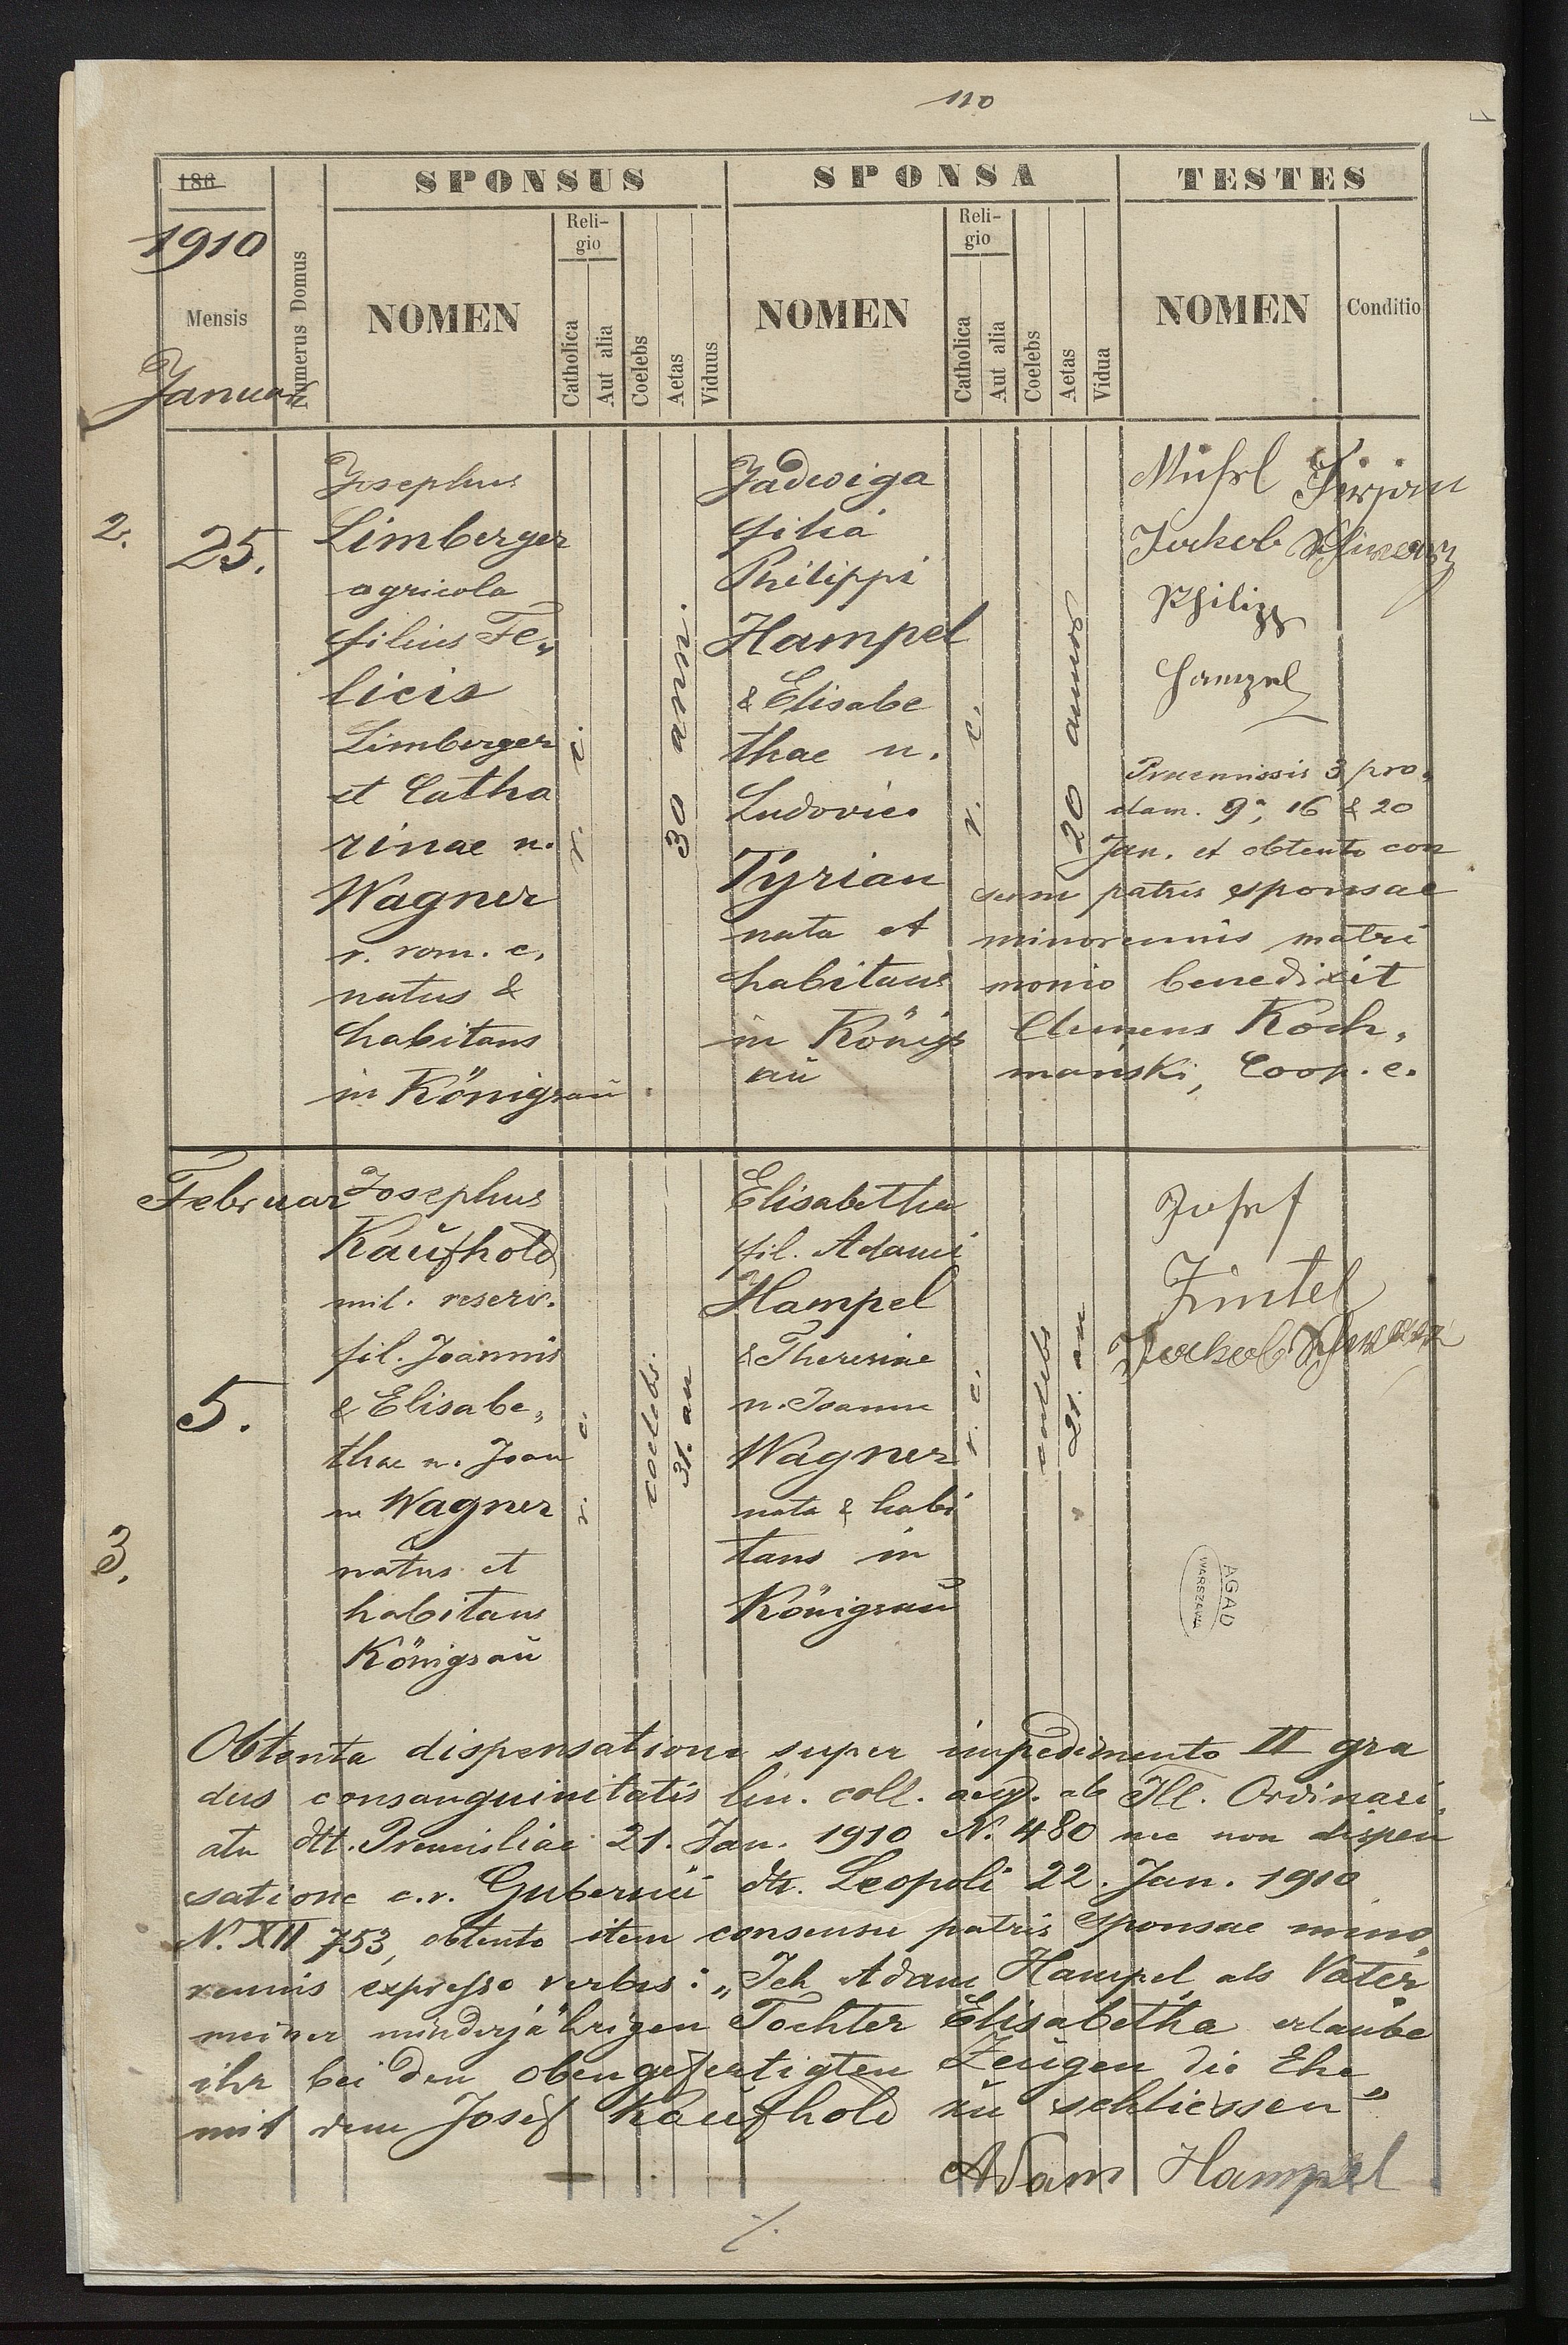 110
186
SPONSUS
SPONSA
TESTES
1910
Mensis
Januar
Numerus Domus
NOMEN
Reli-
gio
Catholica
Aut alia
Coelebs
Aetas
Viduus
NOMEN
Reli-
gio
Catholica
Aut alia
Coelebs
Aetas
Vidua
NOMEN
Conditio
2.
25.
Josephus
Limberger
agricola
filius Fe„
licis
Limberger
et Catha
rinae n.
Wagner
r. rom. c.
natus &
habitans
in Königsaŭ
r. c.
30 ann.
Jadwiga
filia
Philippi
Hampel
& Elisabe
thae n.
Ludovico
Tyrian
nata et
habitans
in Königs
aŭ
r. c.
20 annos
Jackob Schwarz
Philipp
Hampel
Praemissis 3 pro„
clam. 9, 16 & 20
Jan. et obtento con
sensu patris sponsae
minorennis matri
monio benedixit
Clemens Koch„
mański, Coop. e.
Februar
3.
5.
Josephus
Kaŭfhold
mil. reserv.
fil. Joannis
& Elisabe„
thae n. Joan
ne Wagner
natus et
habitans
Königsaŭ
r. c.
coelebs.
31. an
Elisabetha
fil. Adami
Hampel
& Theresiae
n. Joanne
Wagner
nata & habi
tans in
Königsaŭ
r. c.
coelebs
21. an
Josef
Zintel
Jackob Schwarz
AGAD
WARSZAWA
Obtenta dispensatione super impedimento II gra
dus consanguinitatis lin. coll. aeq. ab Ill. Ordinari„
atu dtt. Premisliae 21. Jan. 1910 N. 480 nec non dispen
satione c.r. Gubernii dtt. Leopoli 22. Jan. 1910
N. XII 753, obtento item consensu patris sponsae mino„
rennis expresso verbis: „Ich Adam Hampel als Vater
meiner minderjährigen Tochter Elisabetha erlaŭbe
ihr bei den obengefertigten Zeŭgen die Ehe
mit dem Josef Kaŭfhold zŭ schliessen"
Adam Hampel
./.